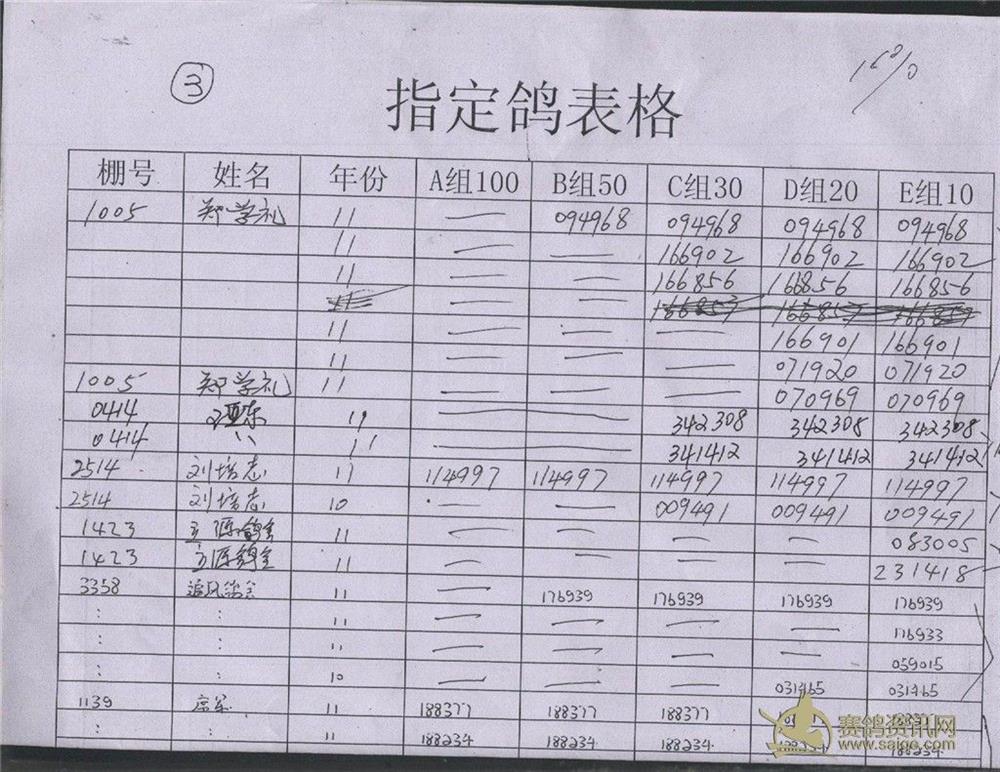 ③
指定鸽表格
棚号 姓名 年份 A组100 B组50 C组30 D组20 E组10
1005 郑学礼 11 — 094968 094968 094968 094968
11 — — 166902 166902 166902
11 — — 166856 166856 166856
— — 166857 166857 166857
11 — — — 166901 166901
11 — — — 071920 071920
1005 郑学礼 11 — — — 070969 070969
0414 11 — — 342308 342308 342308
0414 〃 11 — — 341412 341412 341412
2514 刘培志 11 114997 114997 114997 114997 114997
2514 刘培志 10 — — 009491 009491 009491
1423 11 — — — — 083005
1423 11 — — — — 231418
3358 11 — 176939 176939 176939 176939
: : 11 — — — — 176933
: : 11 — — — — 059015
: : 10 — — — 031465 031465
1139 11 188377 188377 188377
: : 11 188234 188234 188234 188234 188234
赛鸽资讯网
www.saige.com